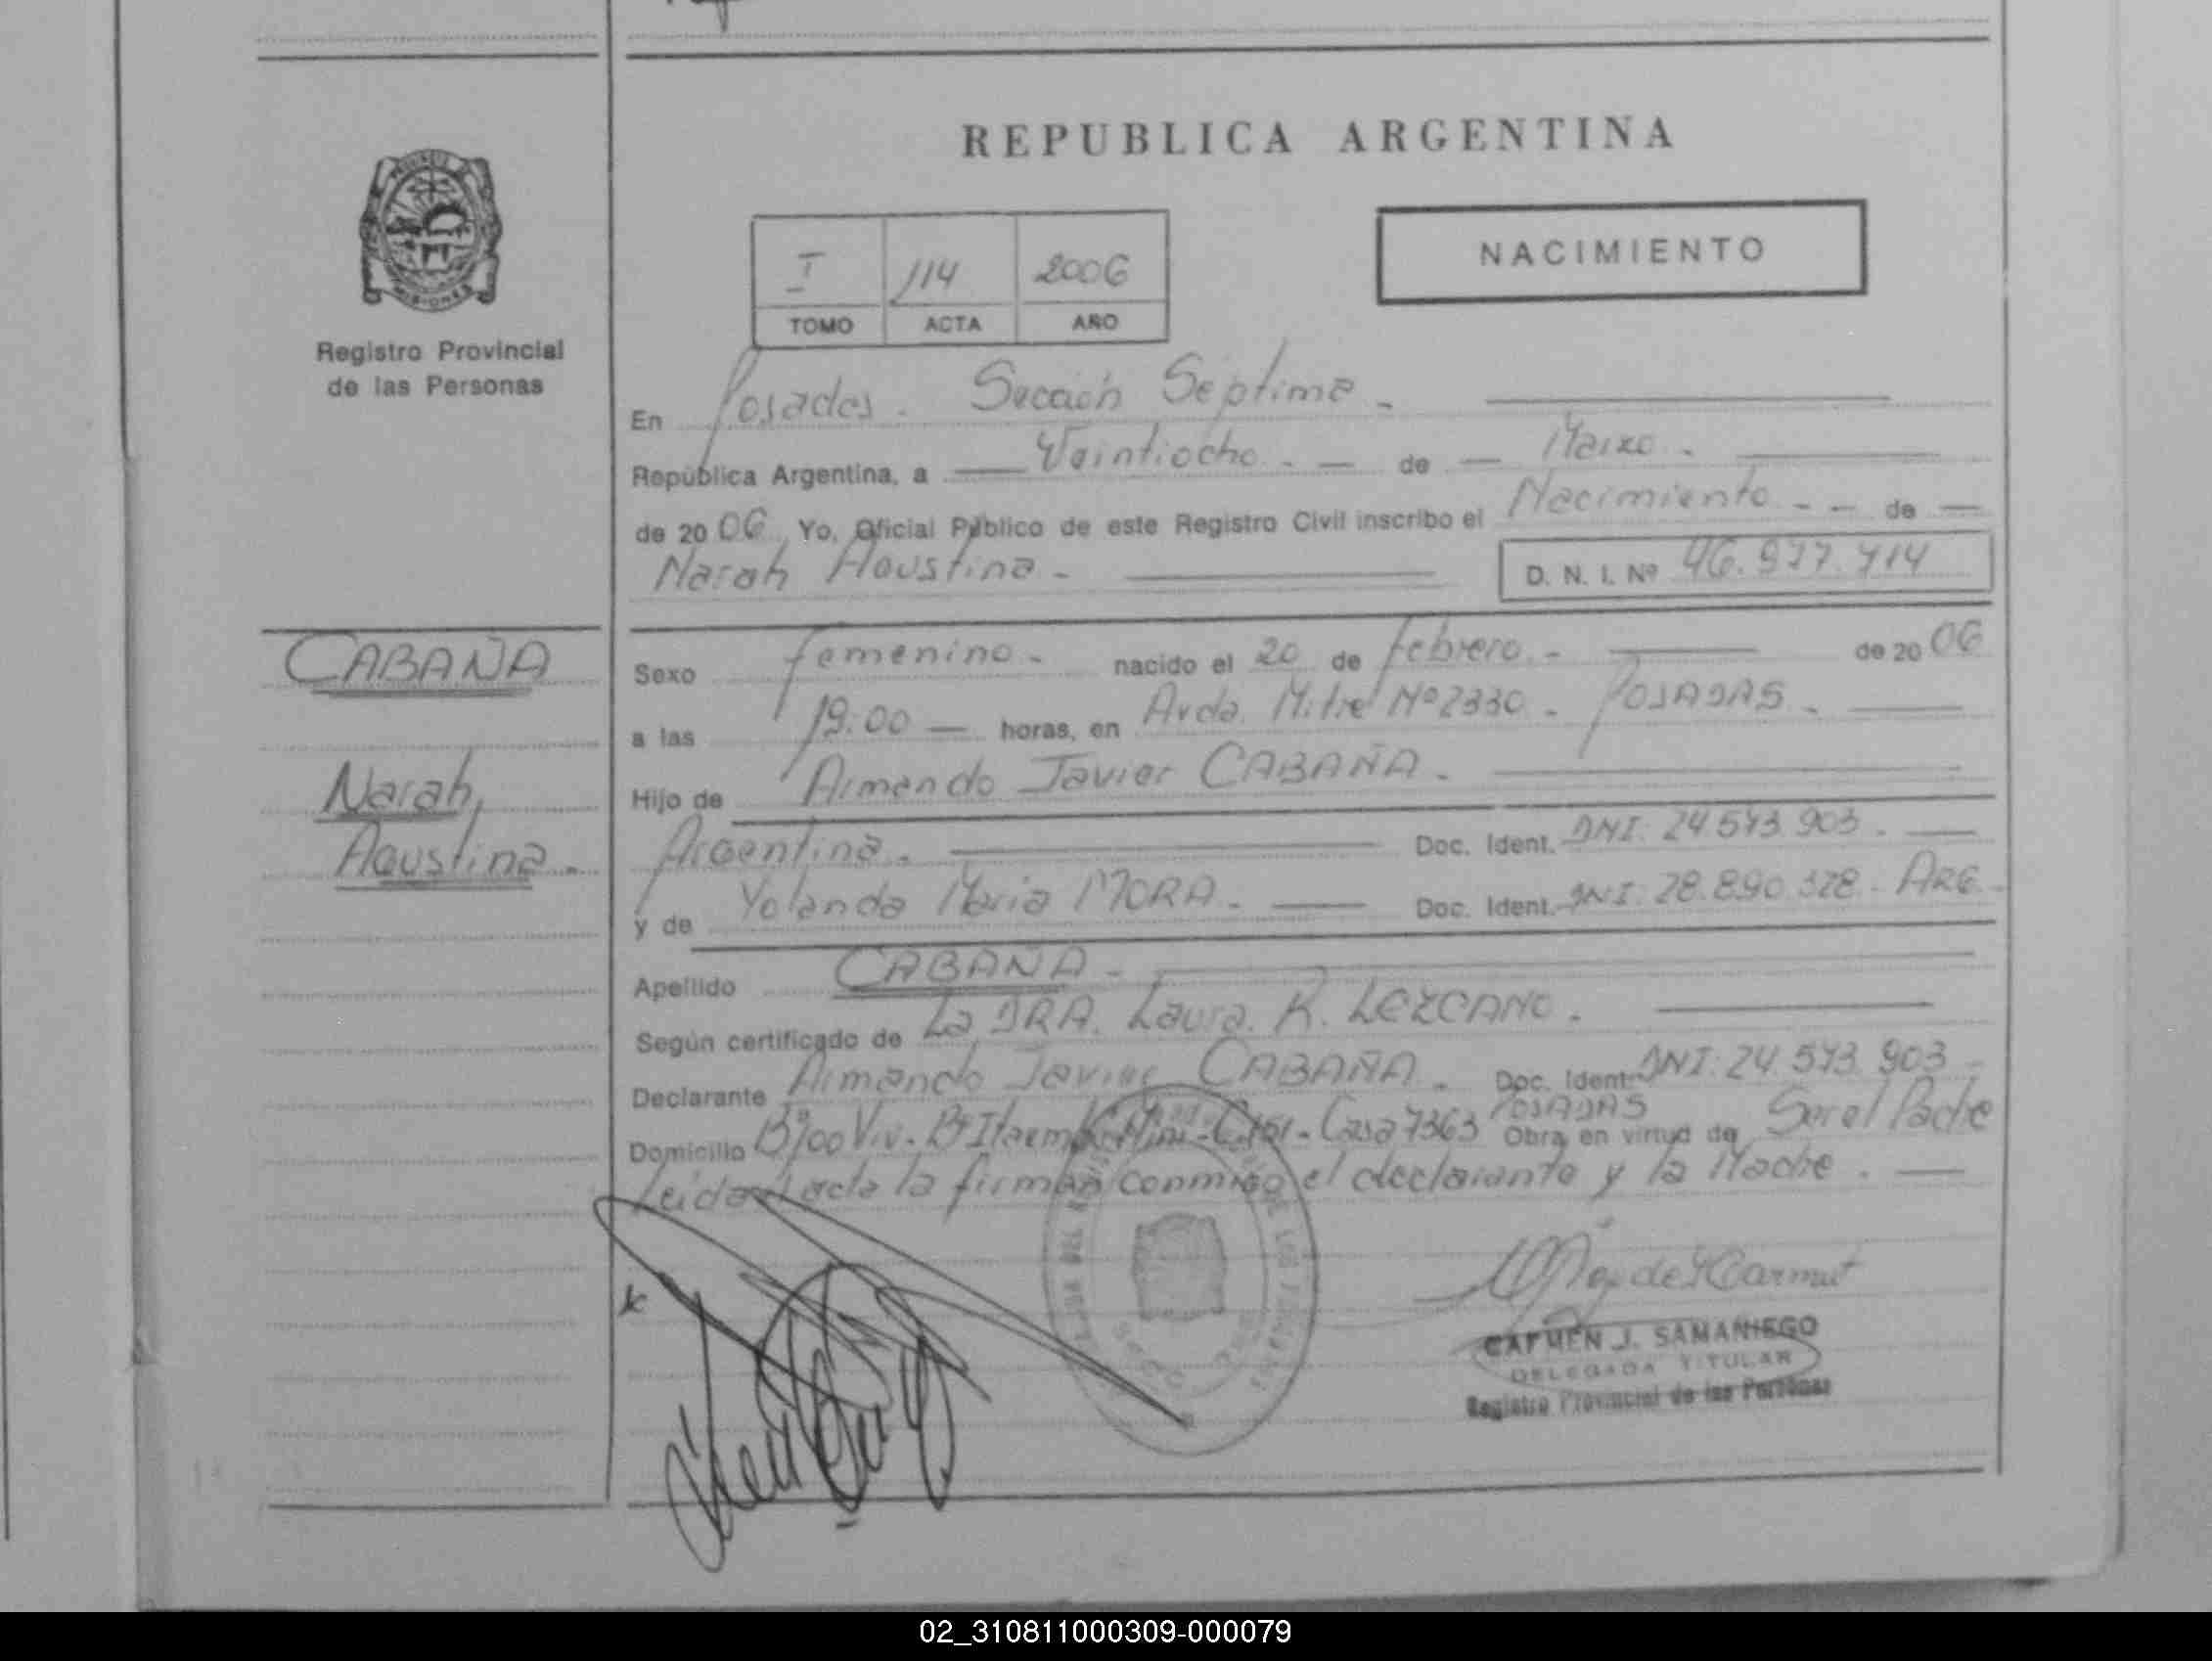 REPUBLICA ARGENTINA
MISIONES
Registro Provincial
de las Personas
NACIMIENTO
I 114 2006
TOMO ACTA AÑO
En Posadas. Sección Septima -
República Argentina, a Veintiocho - de Marzo -
de 2006 Yo, Oficial Público de este Registro Civil inscribo el Nacimiento - - de
Narah Agustina - D. N. I. Nº 46.977.414
CABAÑA
Narah,
Agustina -
Sexo femenino - nacido el 20 de febrero - de 2006
a las 19:00 horas, en Avda. Mitre Nº 2330 - POSADAS -
Hijo de Armando Javier CABAÑA -
Argentina - Doc. Ident. DNI: 24.573.903 -
y de Yolanda Maria MORA - Doc. Ident. DNI: 28.890.328 - ARG -
Apellido CABAÑA -
Según certificado de La DRA. Laura R. LEZCANO -
Declarante Armando Javier CABAÑA - Doc. Ident. DNI: 24.573.903 -
POSADAS
Domicilio Casa 7363 Obra en virtud de Ser el Padre
Leida el acta la firman conmigo el declarante y la Madre -
CARMEN J. SAMANIEGO
DELEGADA TITULAR
Registro Provincial de las Personas
02_310811000309-000079